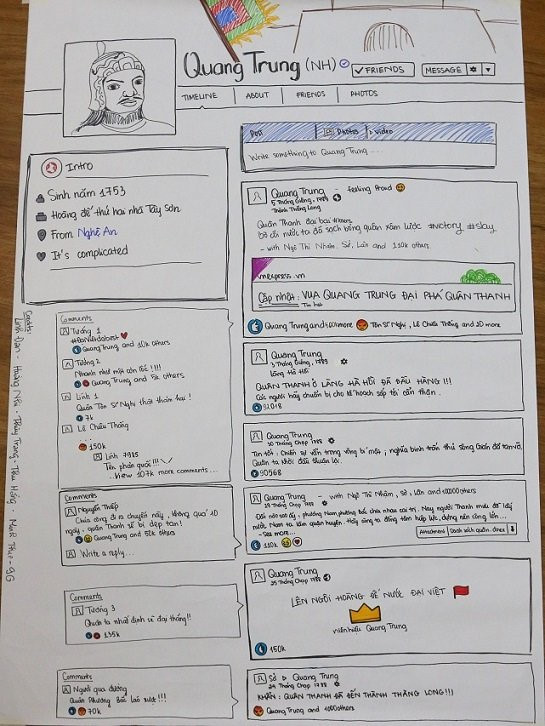 Quang Trung (NH)
✓ FRIENDS
MESSAGE
TIMELINE
ABOUT
FRIENDS
PHOTOS
Post
Photos
Video
Write something to Quang Trung ...
Intro
Sinh năm 1753
Hoàng đế thứ hai nhà Tây Sơn
From Nghệ An
It's complicated
Quang Trung - feeling proud
5 Tháng Giêng, 1789
Thành Thăng Long
Quân Thanh đại bại
Bờ cõi nước ta đã sạch bóng quân xâm lược #victory #slay
- with Ngô Thì Nhậm, Sở, Lân and 150k others
vnexpress.vn
Cập nhật: VUA QUANG TRUNG ĐẠI PHÁ QUÂN THANH
Quang Trung and more
Tôn Sĩ Nghị, Lê Chiêu Thống and 20 more
Comments
Tướng 1
Quang Trung and 10k others
Tướng 2
Nhanh như một cơn gió!!!!
Quang Trung and others
Lính 1
Quân Tôn Sĩ Nghị thật thảm hại!
7k
Lê Chiêu Thống
:
150k
Lính 7985
Tên phản quốc!!!
...View 107k more comments...
Quang Trung
3 Tháng Giêng, 1789
QUÂN THANH Ở LÀNG HÀ HỒI ĐÃ ĐẦU HÀNG!!!
Các ngươi hãy chuẩn bị cho kế hoạch sắp tới cẩn thận.
Quang Trung
30 Tháng Chạp 1788
Tin tốt: Chiến sự vẫn trong vòng bí mật, nghĩa binh trấn thủ sông Gián đã tan vỡ.
Quân ta khởi đầu thuận lợi.
90568
Comments
Nguyễn Thiếp
Chúa công đi ra chuyến này, không quá 10
ngày, quân Thanh sẽ bị dẹp tan!
Quang Trung and 50k others
Write a reply...
Quang Trung with Ngô Thì Nhậm, Sở, Lân and others
29 Tháng Chạp 1788
See more...
110k
Attachment
Comments
Tướng 3
Chúng ta nhất định sẽ đại thắng!!
135k
Quang Trung
25 Tháng Chạp 1788
LÊN NGÔI HOÀNG ĐẾ NƯỚC ĐẠI VIỆT
niên hiệu Quang Trung
150k
Comments
Người qua đường
Quân Phương Bắc láo xược!!!
70k
Sở ▷ Quang Trung
24 Tháng Chạp 1788
KHẨN: QUÂN THANH ĐÃ ĐẾN THÀNH THĂNG LONG!!!
Quang Trung and others
Credits:
Linh Đan - Hoàng Nhi - Thùy Trang